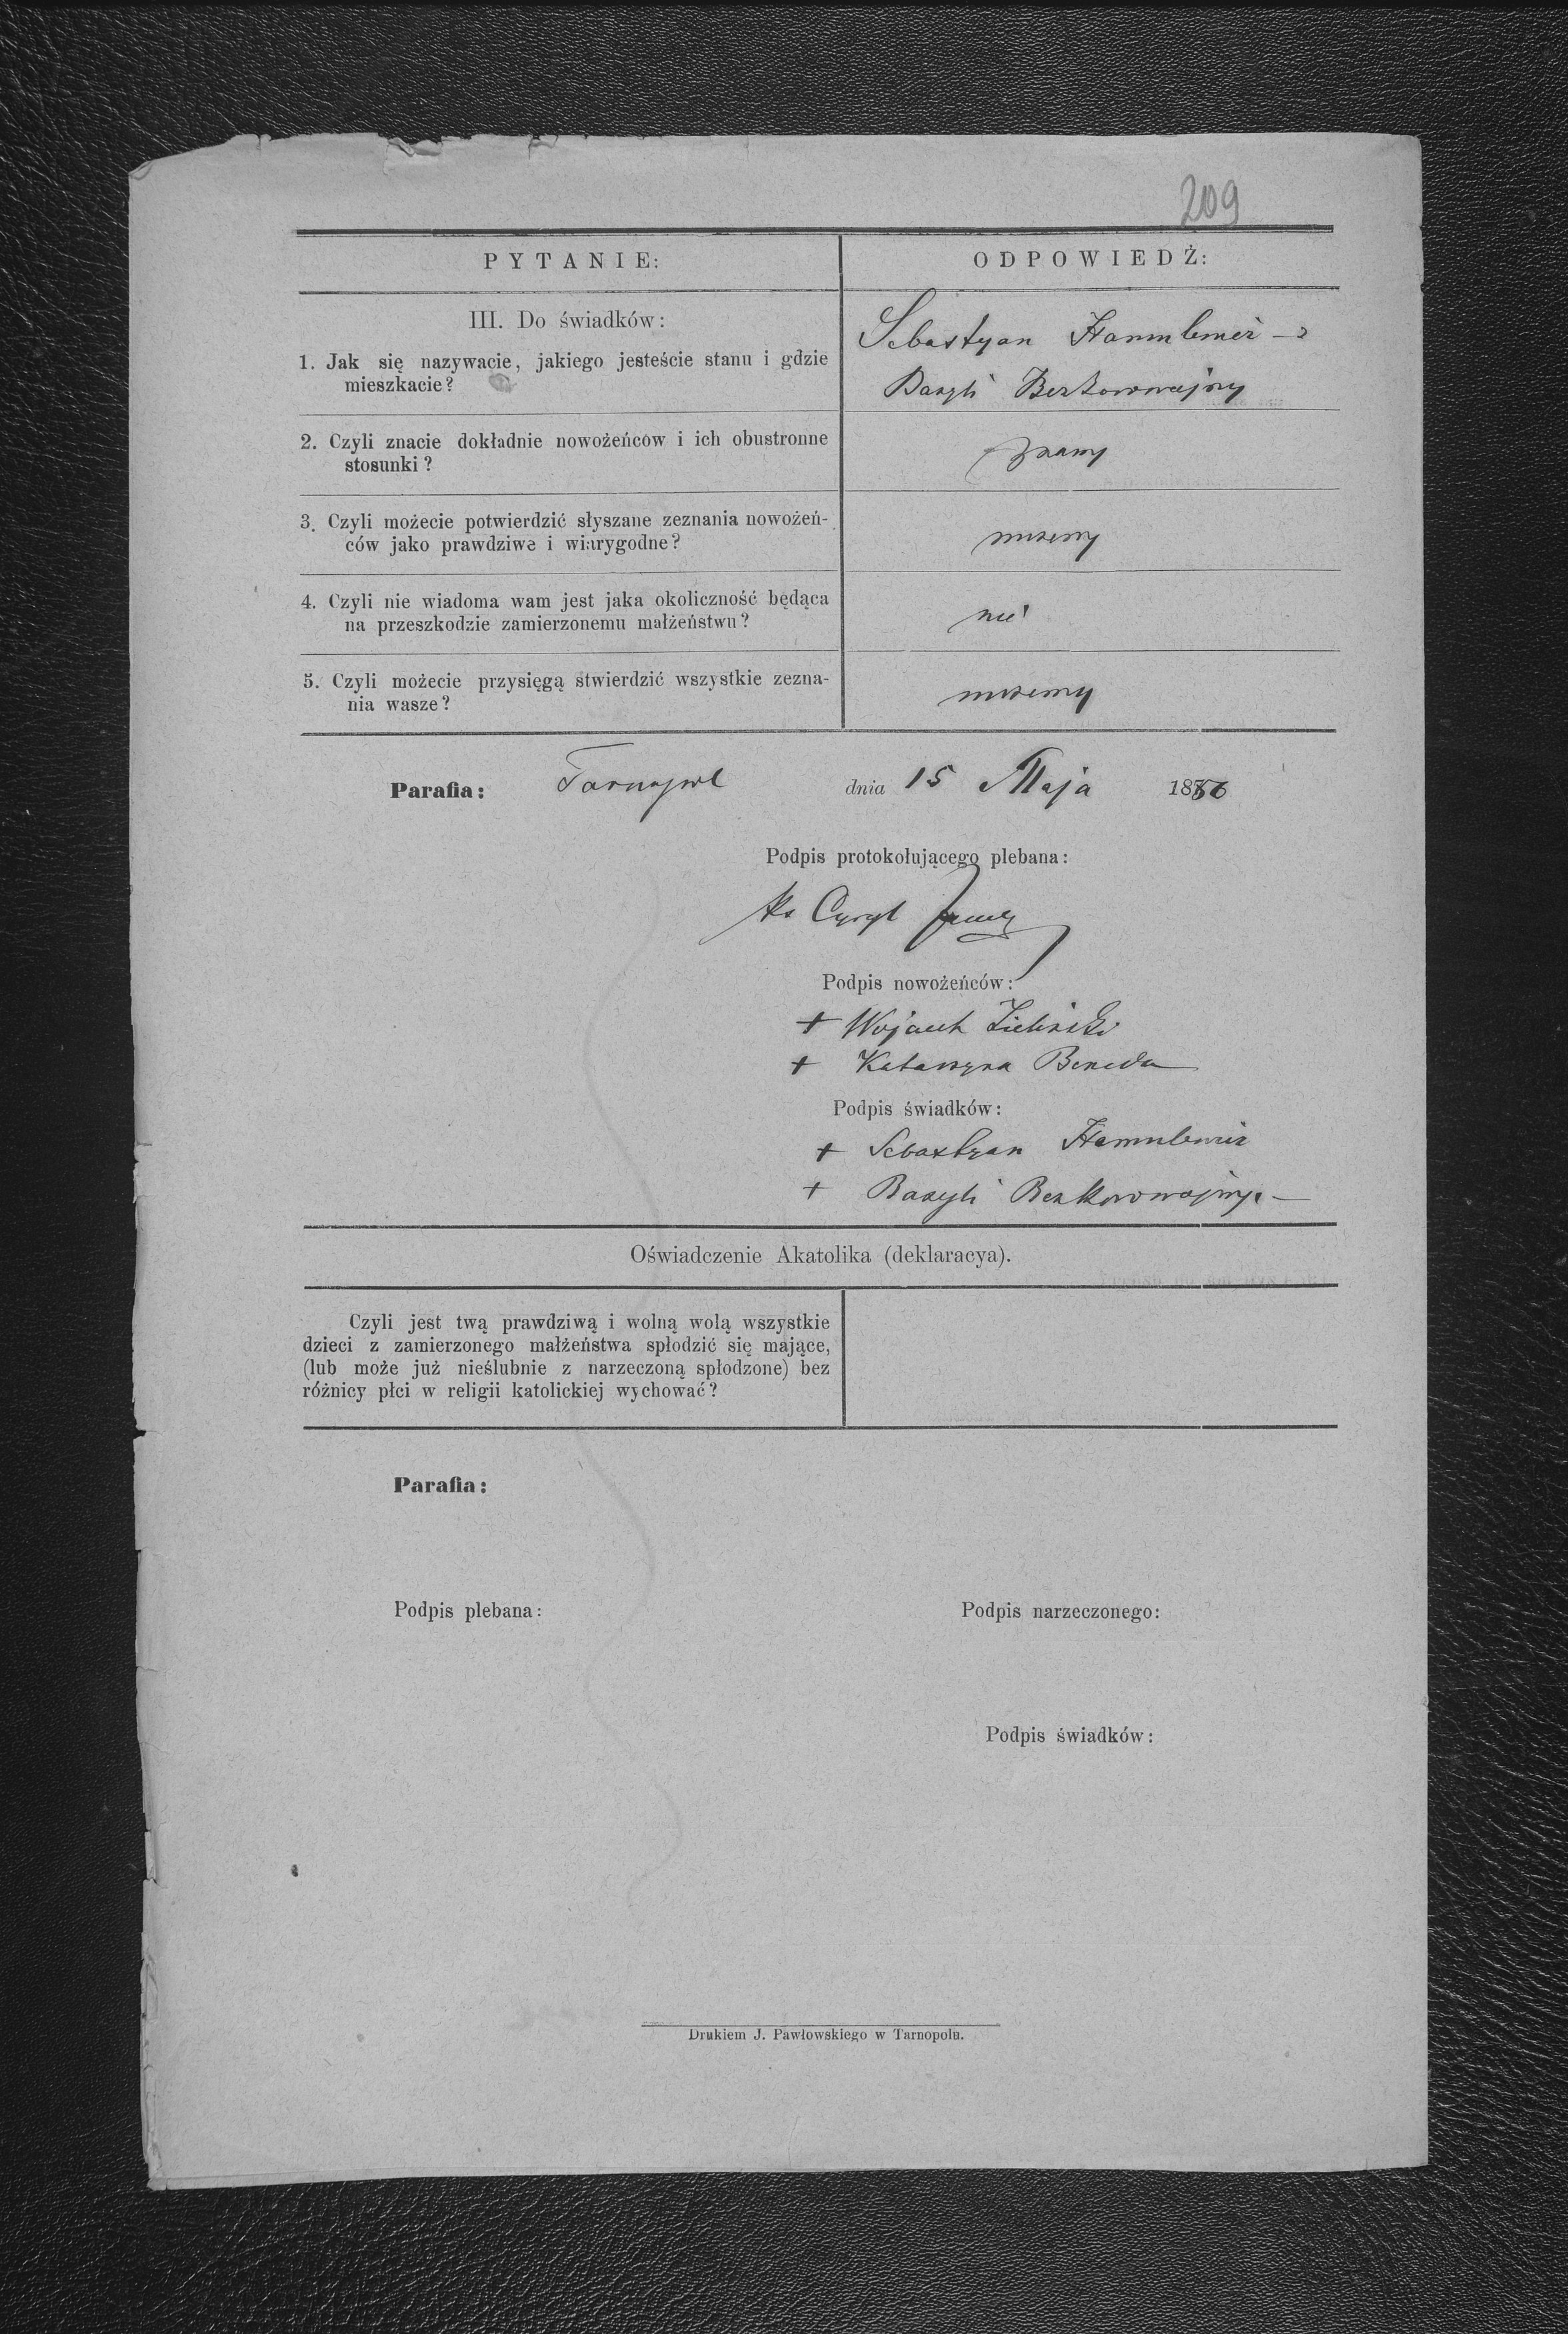 209
PYTANIE:
ODPOWIEDŹ:
III. Do świadków:
1. Jak się nazywacie, jakiego jesteście stanu i gdzie
mieszkacie?
Sebastyan
Bazyli
2. Czyli znacie dokładnie nowożeńców i ich obustronne
stosunki?
znamy
3. Czyli możecie potwierdzić słyszane zeznania nowożeń-
ców jako prawdziwe i wiarygodne?
możemy
4. Czyli nie wiadoma wam jest jaka okoliczność będąca
na przeszkodzie zamierzonemu małżeństwu?
nie
5. Czyli możecie przysięgą stwierdzić wszystkie zezna-
nia wasze?
możemy
Parafia: Tarnopol dnia 15 Maja 1886
Podpis protokołującego plebana:
Ks Cyryl
Podpis nowożeńców:
+ Wojciech Zieliński
+ Katarzyna Beneda
Podpis świadków:
+ Sebastyan
+ Bazyli
Oświadczenie Akatolika (deklaracya).
Czyli jest twą prawdziwą i wolną wolą wszystkie
dzieci z zamierzonego małżeństwa spłodzić się mające,
(lub może już nieślubnie z narzeczoną spłodzone) bez
różnicy płci w religii katolickiej wychować?
Parafia:
Podpis plebana:
Podpis narzeczonego:
Podpis świadków:
Drukiem J. Pawłowskiego w Tarnopolu.